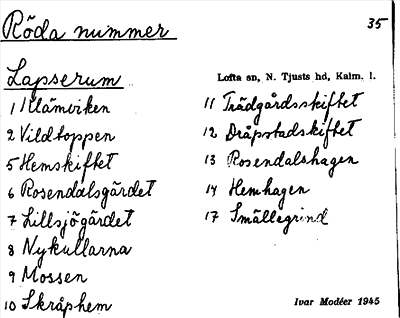 Röda nummer
35
Lapserum
Lofta sn, N. Tjusts hd, Kalm. l.
1 Ulämviken
2 Vildtoppen
5 Hemskiftet
6 Rosendalsgärdet
7 Lillsjögärdet
8 Nykullarna
9 Mossen
10 Skråphem
11 Trädgårdsskiftet
12 Dråpstadskiftet
13 Rosendalshagen
14 Hemhagen
17 Smällegrind
Ivar Modéer 1945